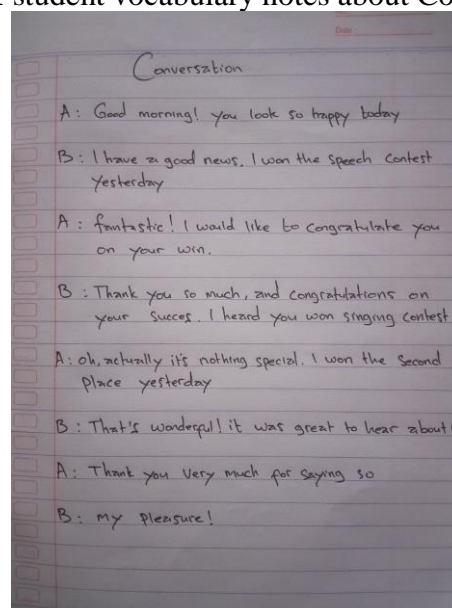 r student vocabulary notes about Co
Date
Conversation
A : Good morning! you look so happy today
B : I have a good news. I won the speech contest
yesterday
A : fantastic! I would like to congratulate you
on your win.
B : Thank you so much, and congratulations on
your succes. I heard you won singing contest
A : oh, actually it's nothing special. I won the second
place yesterday
B : That's wonderful! it was great to hear about
A : Thank you very much for saying so
B : my pleasure!